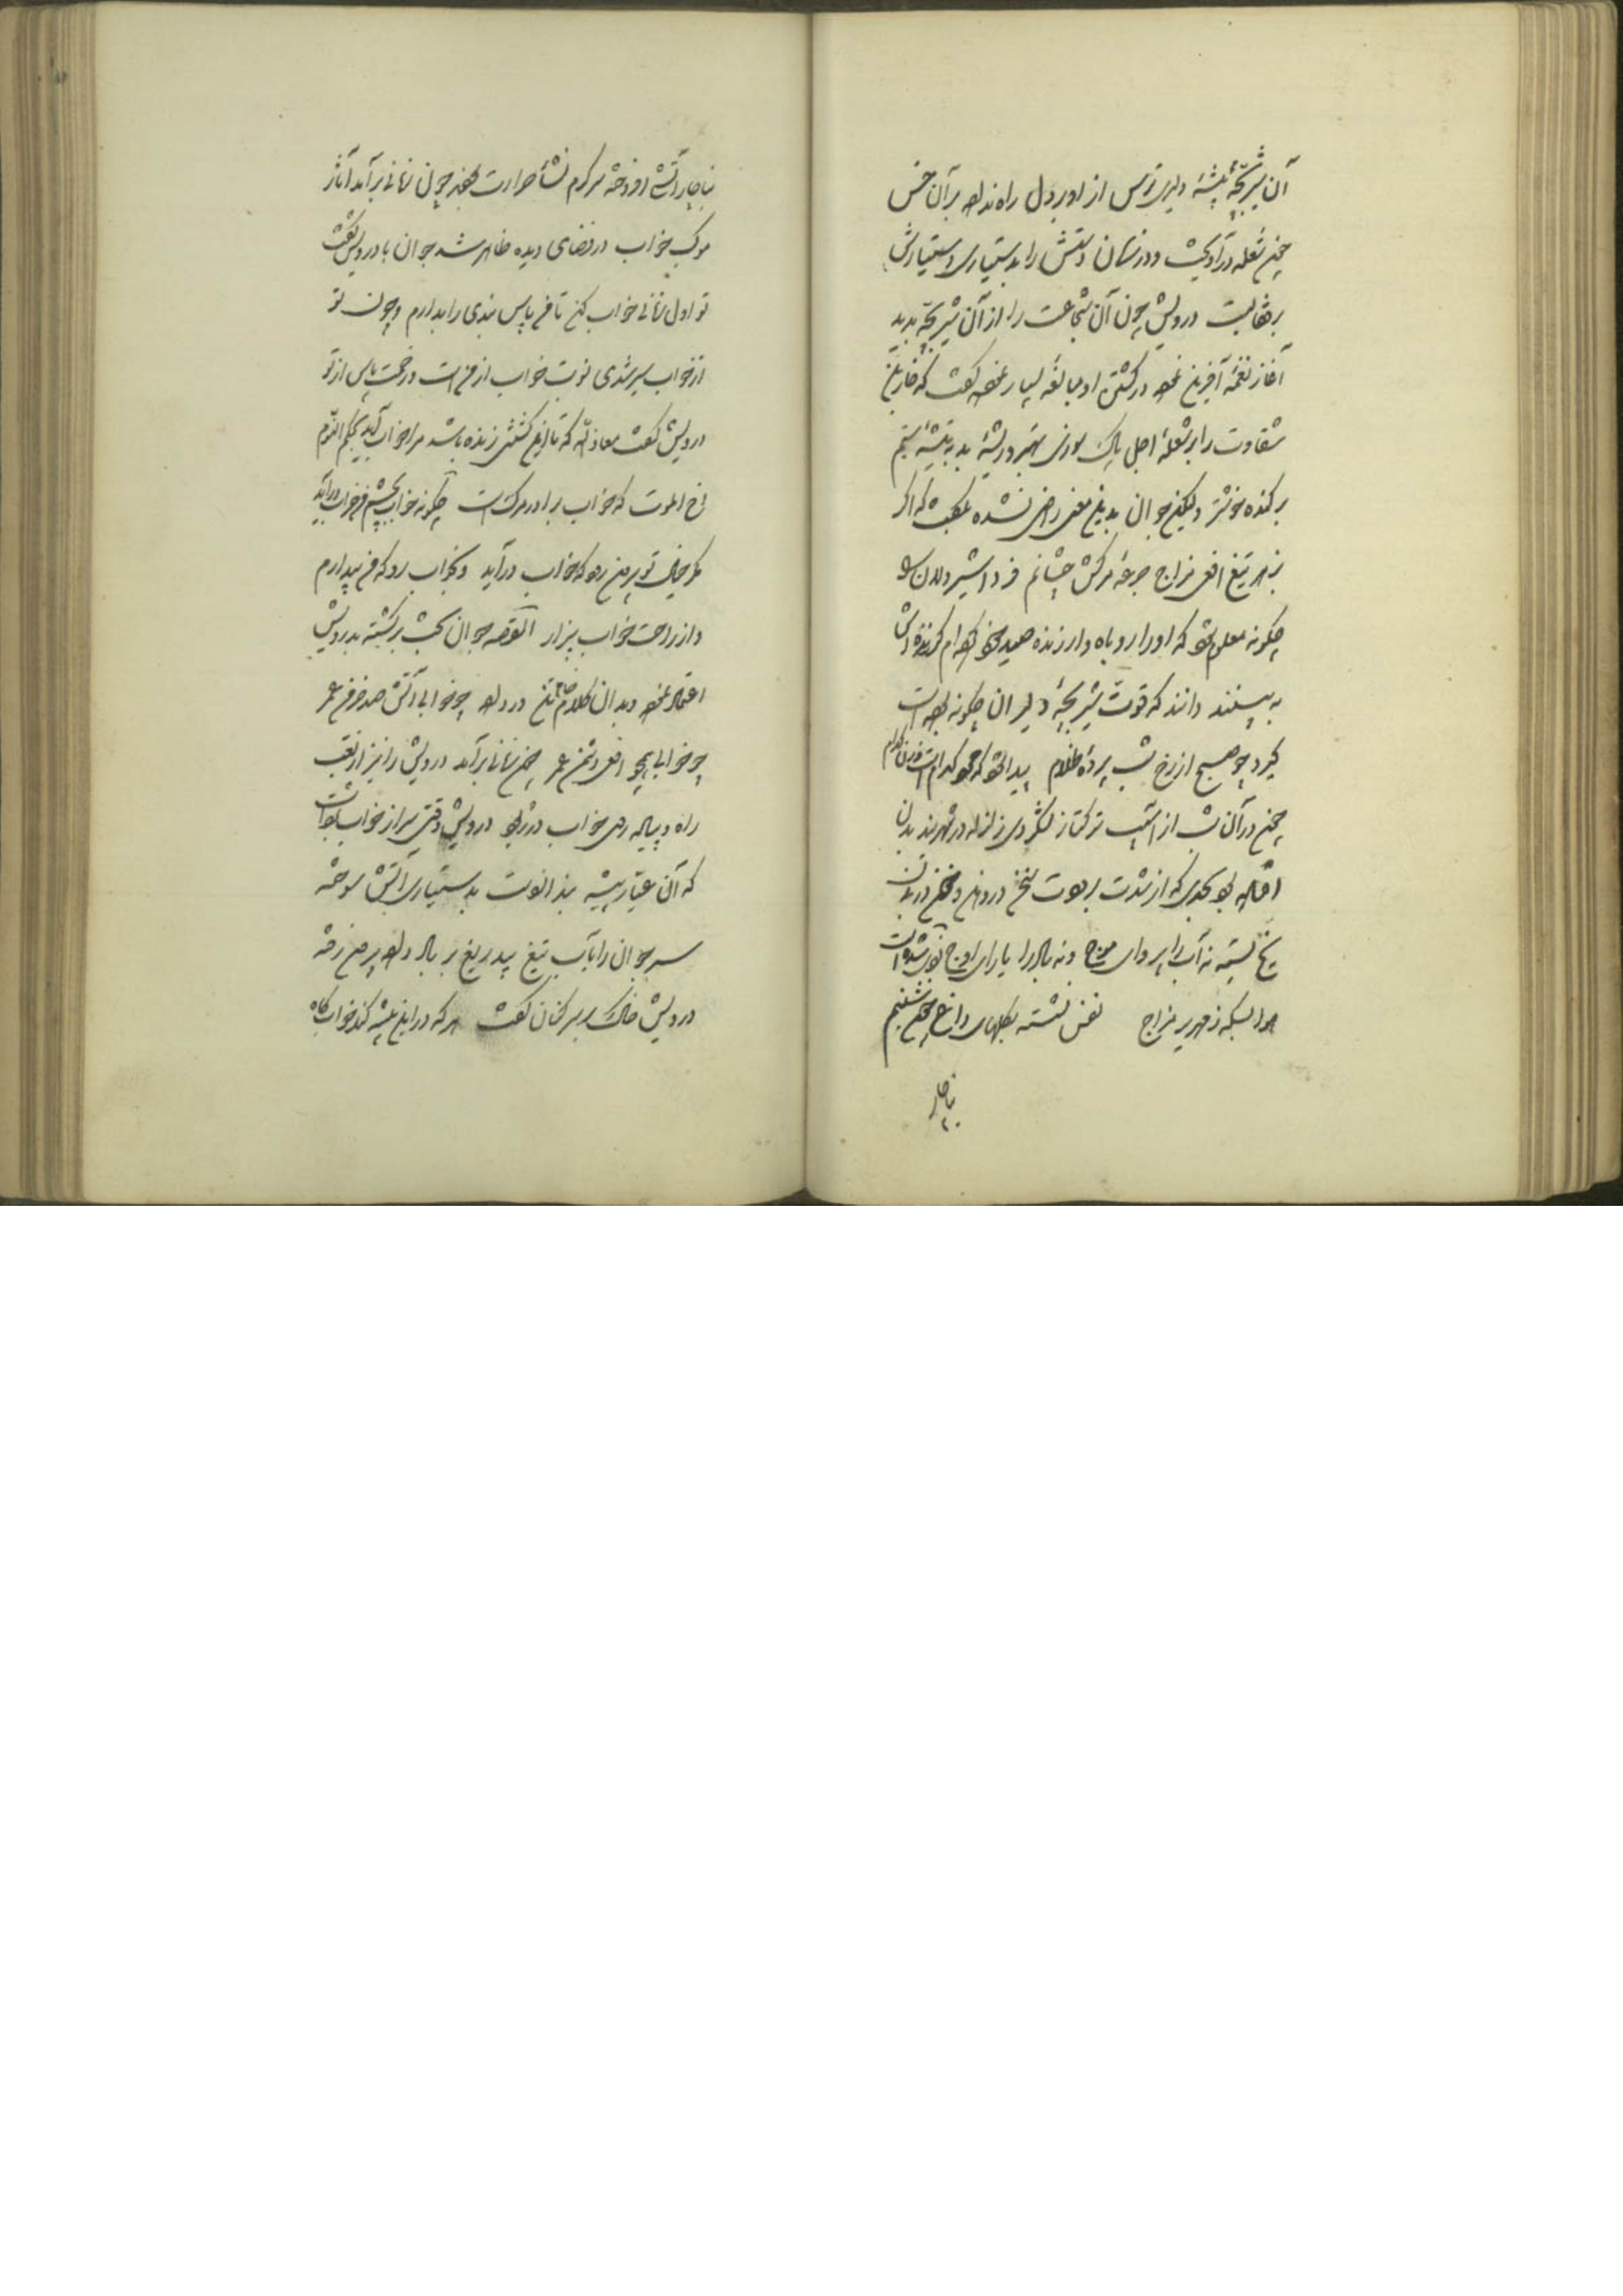 آن شیربچهٔ بیشهٔ دلیری ترس از او بر دل راه نداده بر آن خس
چون شعله درآویخت و در زمان دستش را بدستیاری دستیارش
بر قفا بست درویش چون آن شجاعت را از آن شیربچه بدید
آغاز نغمهٔ آفرین نموده در کشتن او مبالغه بسیار نموده گفت که خار بن
شقاوت را بر شعلهٔ اجل پاک سوزی بهتر و ریشهٔ بد به تیشهٔ ستم
بر کنده خوشتر ولیکن جوان بدین معنی راضی نشده میگفت که اگر
زهر تیغ افعی مزاج جرعهٔ مرگش چشانم فردا شیردلان را
چگونه معلوم شود که او را روباه وار زنده صید خود کرده‌ام
به بینند دانند که قوت شیربچهٔ دلیران چگونه بوده است
گیرد چو صبح از رخ شب پردهٔ ظلام پیدا شود که مرد کدام است و زن کدام
چون در آن شب از آسیب ترکتاز لشکر دی زلزله در شهربند بدن
افتاده بود بحدی که از شدت برودت سخن در دهن و خون در بدن
یخ بسته نه آب را پروای موج و نه باد را یارای اوج بود
هوا بسکه زمهریر مزاج نفس نشسته بگلهای داغ چون شبنم
ناچار
ناچار آتشی افروخته سرگرم نشأ حرارت بودند چون زمانی برآمد آثار
موکب خواب در فضای دیده ظاهر شد جوان با درویش گفت
تو اول زمانی خواب کن تا من پاس بندی را بدارم و چون تو
از خواب سیر شدی نوبت خواب از من است و زحمت پاس از تو
درویش گفت معاذ الله که تا این کشتنی زنده باشد مرا خواب آید بحکم النوم
اخ الموت که خواب برادر مرگ است چگونه خواب بچشم من درآید
مگر خیال تو بر من بود که خواب درآید تو بخواب رو که من بیدارم
و از راحت خواب بیزار القصه جوان بخت برگشته بدرویش
اعتماد نموده و بدان کلام خام تن در داد چو خوابی آتش صد خرمن عمر
چو خوابی همچو افعی دشمن عمر چون زمانی برآمد درویش را نیز از تعب
راه و پیاله‌ می خواب در ربود درویش وقتی سر از خواب برداشت
که آن عیارپیشه بند از دست بدستیاری آتش سوخته
سر جوان را بآب تیغ بیدریغ بر باد داده بر من رفته
درویش خاک بر سر کنان گفت هر که در این بیشه کند خوابگاه